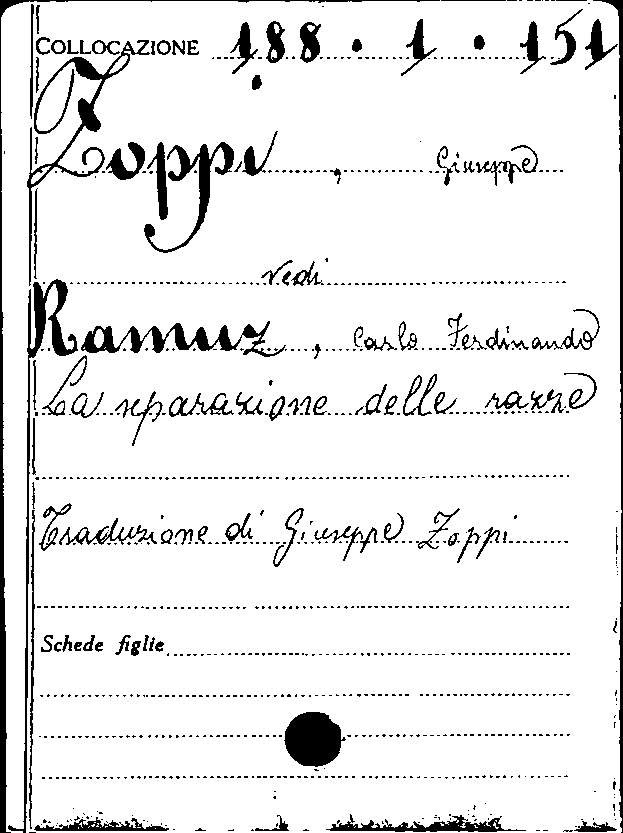 COLLOCAZIONE 188 . 1 . 151
Zoppi, Giuseppe
vedi
Ramuz, Carlo Ferdinando
La separazione delle razze
Traduzione di Giuseppe Zoppi
Schede figlie